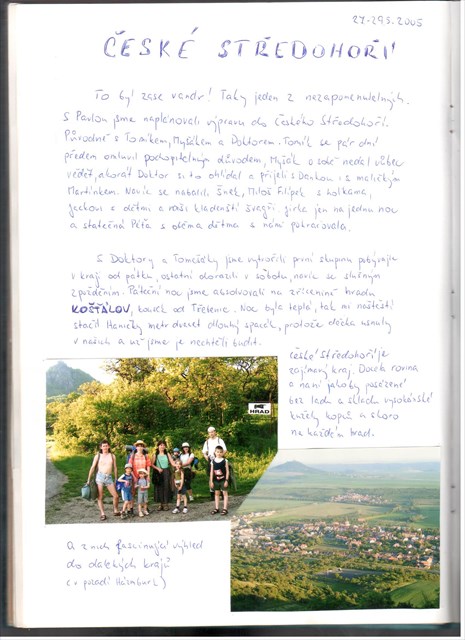 27-29.5.2005
ČESKÉ STŘEDOHOŘÍ
To byl zase vandr! Taky jeden z nezapomenutelných.
S Pavlou jsme naplánovali výpravu do Českého Středohoří.
Původně s Tomíkem, Myšákem a Doktorem. Tomík se pár dní
předem omluvil pochopitelným důvodem, Myšák o sobě nedal vůbec
vědět, akorát Doktor si to ohlídal a přijeli s Dankou i s maličkým
Martínkem. Navíc se nabalili Šnek, Miloš Filípek s holkama,
s dětmi a naši kladenští švagři jen na jednu noc
a statečná Péťa s oběma dětma s námi pokračovala.
S Doktory a Tomešáky jsme vytvořili první skupinu pobývající
v kraji od pátku, ostatní dorazili v sobotu, navíc se slušným
zpožděním. Páteční noc jsme absolvovali na zřícenině hradu
KOŠŤÁLOV, kousek od Třebenic. Noc byla teplá, tak mi naštěstí
stačil Haničky metr dvacet dlouhý spacák, protože děcka usnuly
v našich a už jsme je nechtěli budit.
České Středohoří je
zajímavý kraj. Docela rovina
a na ní jakoby posázené
bez ladu a skladu vysokánské
kužely kopců a skoro
na každém hrad.
HRAD
A z nich fascinující výhled
do dalekých krajů
(v pozadí Házmburk)